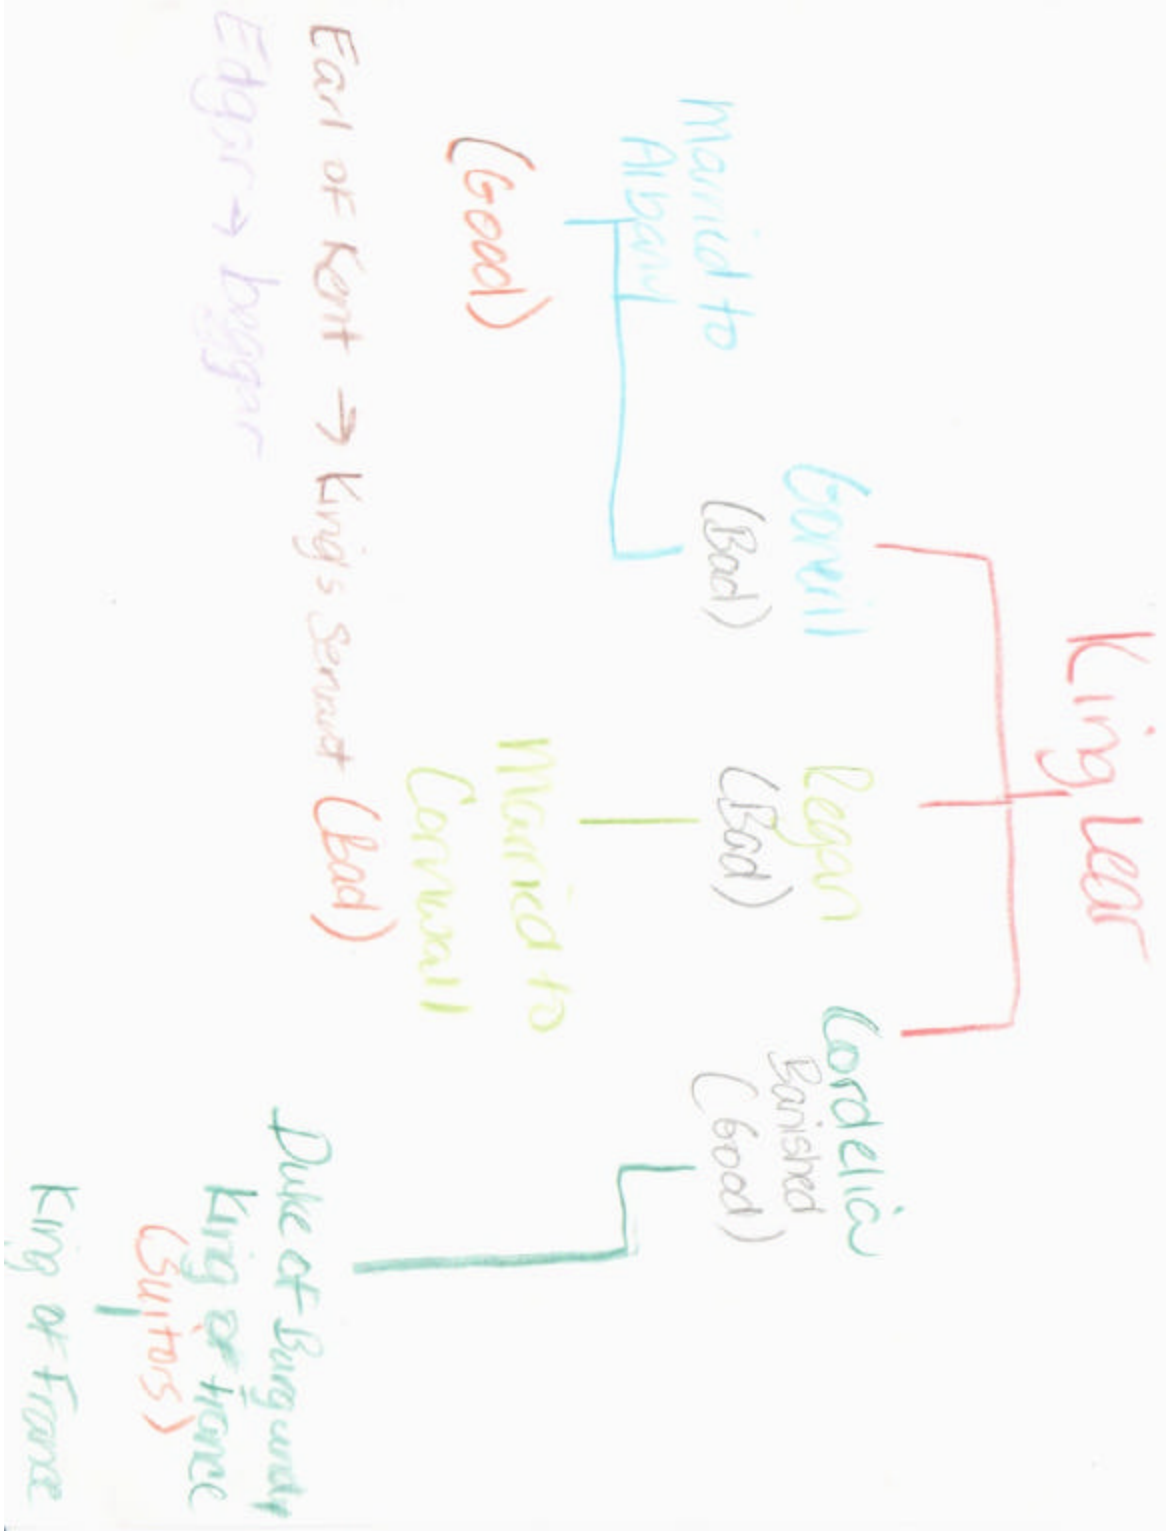 King Lear
Goneril
(Bad)
Married to
Albany
(Good)
Regan
(Bad)
Married to
Cornwall
Cordelia
Banished
(Good)
Duke of Burgundy
King of France
(Suitors)
King of France
Earl of Kent → King's Servant (bad)
Edgar → beggar